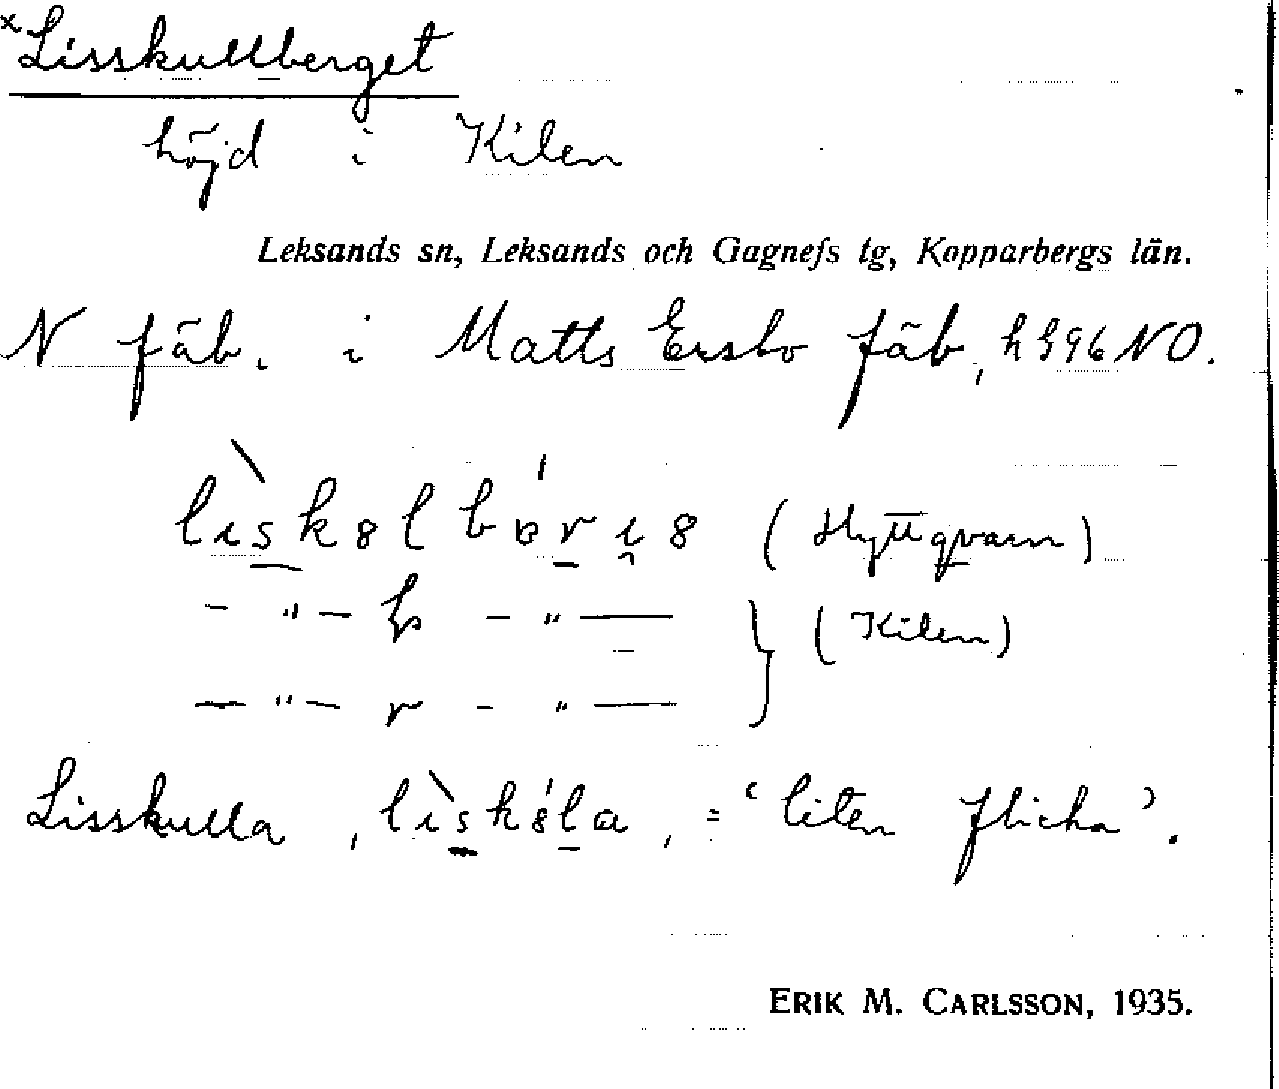 x Lisskullberget
höjd i Kilen
Leksands sn, Leksands och Gagnefs tg, Kopparbergs län.
N fäb. i Matts Ersbo fäb, h 396 NO.
(Hyttqvarn)
— " — b — " — } (Kilen)
— " — r — " —
Lisskulla, = 'liten flicka'.
ERIK M. CARLSSON, 1935.